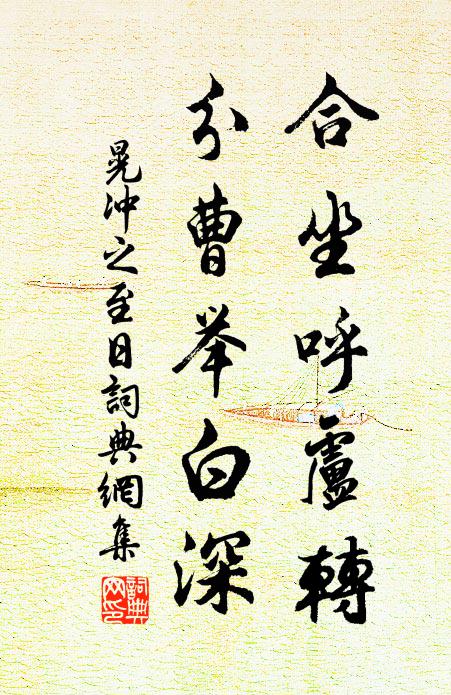 合坐呼廬轉
分曹举白深
晃沖之至日詞典網集
詞典
网印